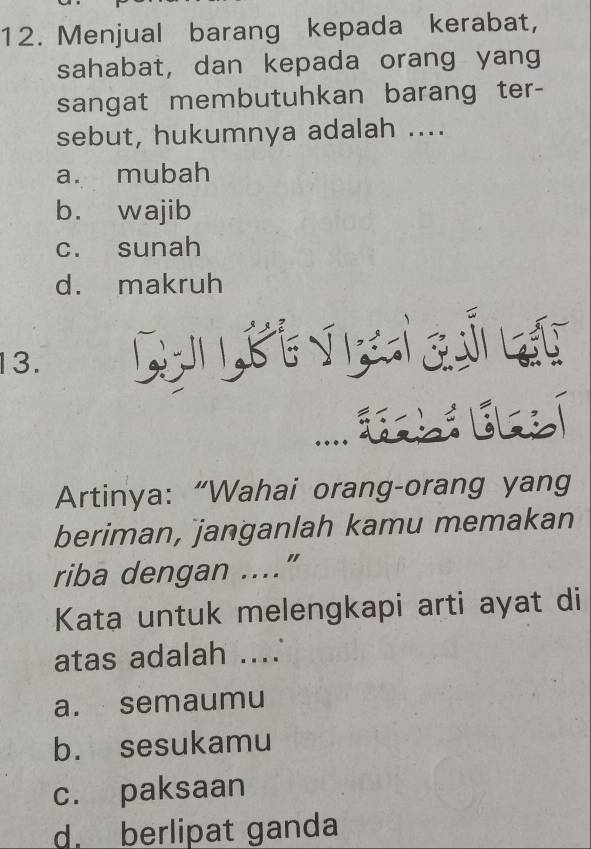 12. Menjual barang kepada kerabat,
sahabat, dan kepada orang yang
sangat membutuhkan barang ter-
sebut, hukumnya adalah ....
a. mubah
b. wajib
c. sunah
d. makruh
13. يٰٓاَيُّهَا الَّذِيْنَ اٰمَنُوْا لَا تَأْكُلُوا الرِّبٰوٓا
اَضْعَافًا مُّضٰعَفَةً ....
Artinya: “Wahai orang-orang yang
beriman, janganlah kamu memakan
riba dengan ....”
Kata untuk melengkapi arti ayat di
atas adalah ....
a. semaumu
b. sesukamu
c. paksaan
d. berlipat ganda